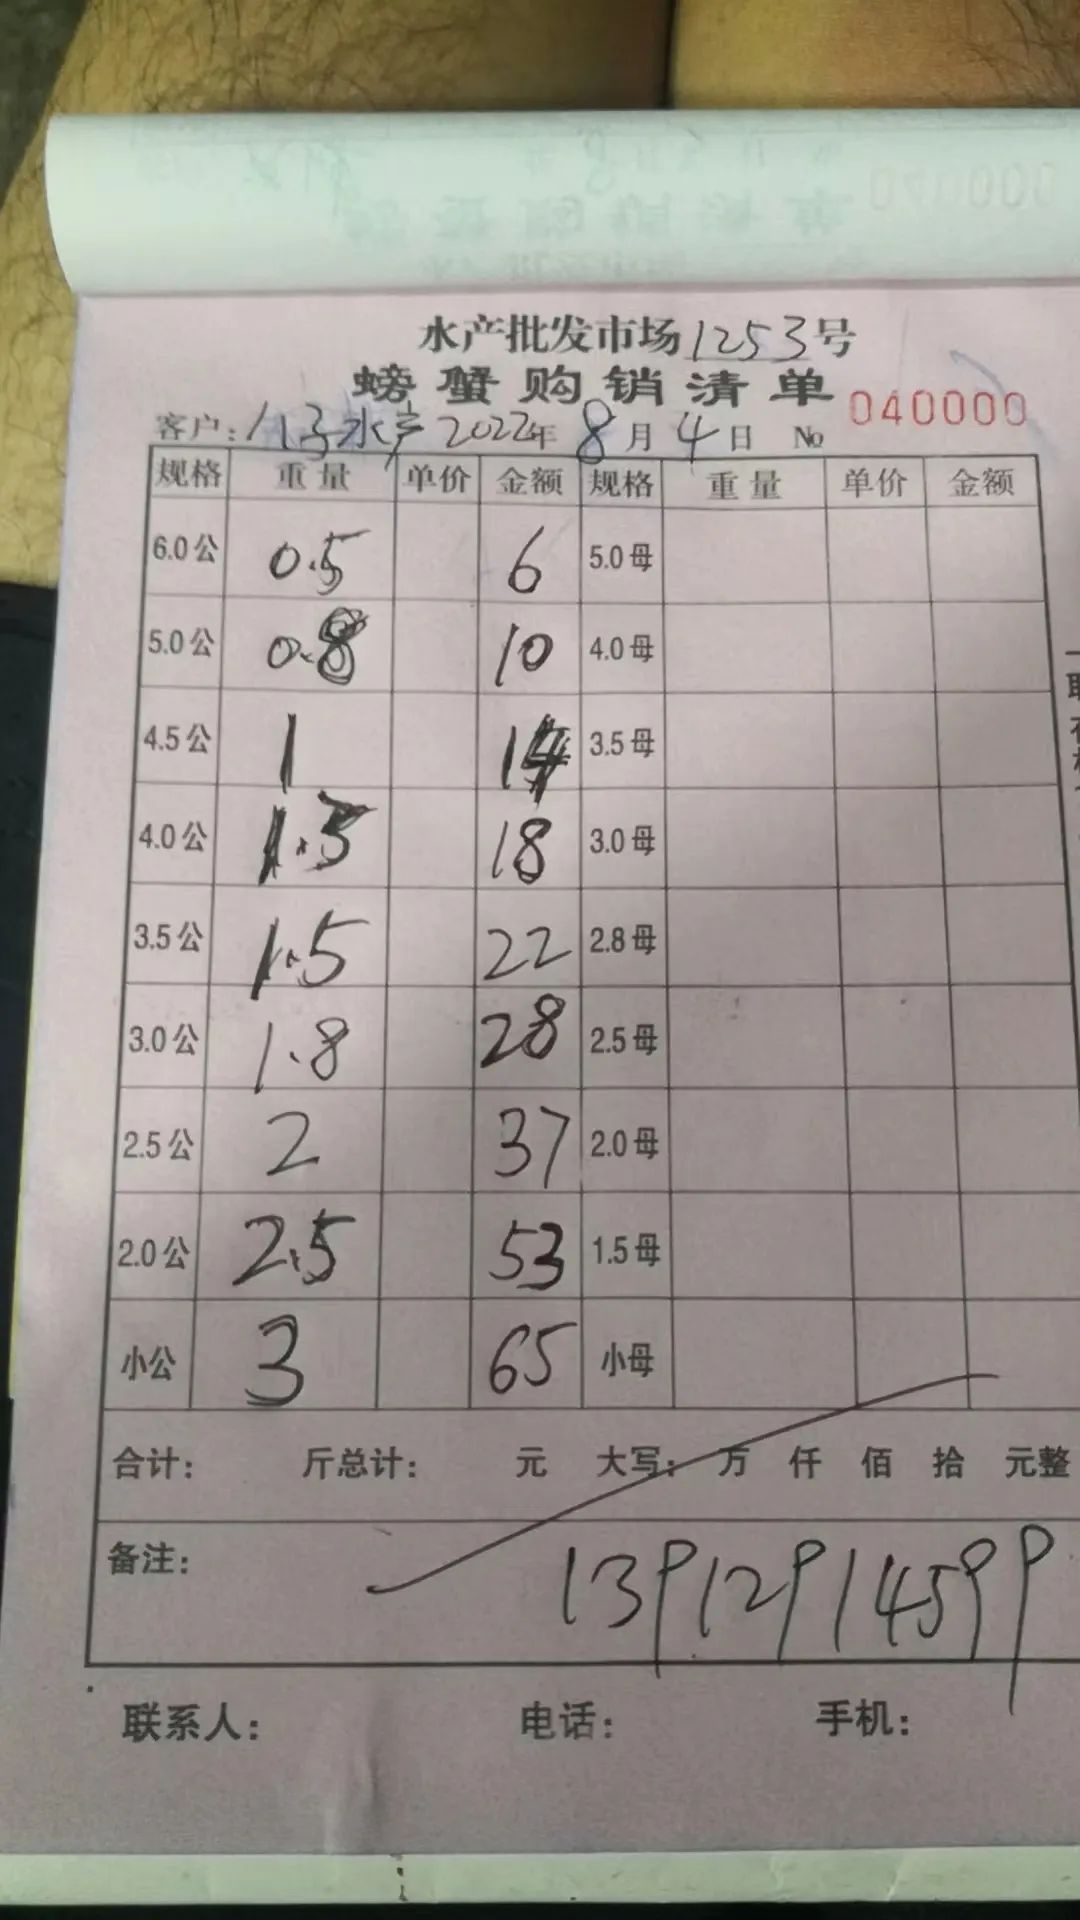 水产批发市场1253号
螃蟹购销清单
040000
客户: 水产 2022年 8月 4日 No
规格 重量 单价 金额 规格 重量 单价 金额
6.0公 0.5 6 5.0母
5.0公 0.8 10 4.0母
4.5公 1 14 3.5母
4.0公 1.5 18 3.0母
3.5公 1.5 22 2.8母
3.0公 1.8 28 2.5母
2.5公 2 37 2.0母
2.0公 2.5 53 1.5母
小公 3 65 小母
合计: 斤总计: 元 大写: 万 仟 佰 拾 元整
备注: 13912914599
联系人: 电话: 手机: